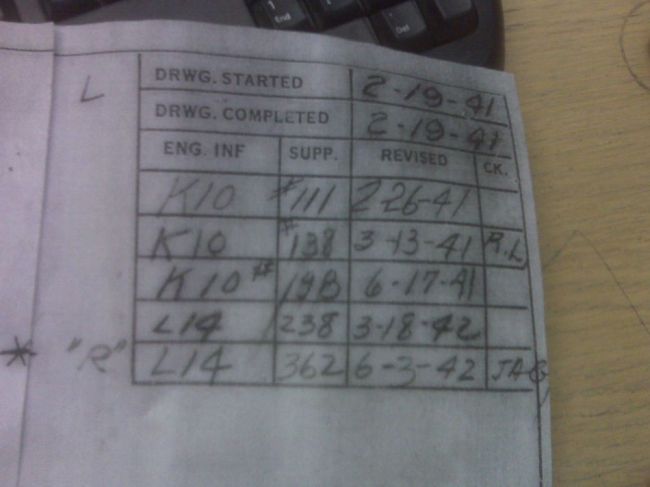 L DRWG. STARTED 2-19-41
DRWG. COMPLETED 2-19-41
ENG. INF SUPP. REVISED CK.
K10 #111 2-26-41
K10 #138 3-13-41 R.L
K10 #198 6-17-41
L14 238 3-18-42
* "R" L14 362 6-3-42 JAG